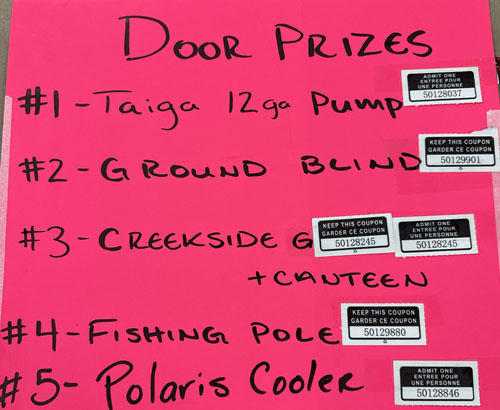 DOOR PRIZES
#1-Taiga 12ga Pump
ADMIT ONE
ENTREE POUR
UNE PERSONNE
50128037
#2-GROUND BLIND
KEEP THIS COUPON
GARDER CE COUPON
50129901
#3-CREEKSIDE G
KEEP THIS COUPON
GARDER CE COUPON
50128245
ADMIT ONE
ENTREE POUR
UNE PERSONNE
50128245
+CANTEEN
#4-FISHING POLE
KEEP THIS COUPON
GARDER CE COUPON
50129880
#5-Polaris Cooler
ADMIT ONE
ENTREE POUR
UNE PERSONNE
50128846